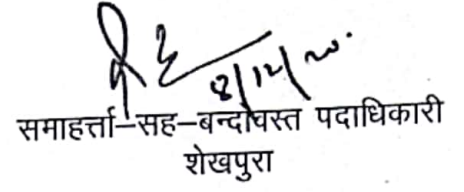 8/12/20.
समाहर्त्ता–सह–बन्दोवस्त पदाधिकारी
शेखपुरा